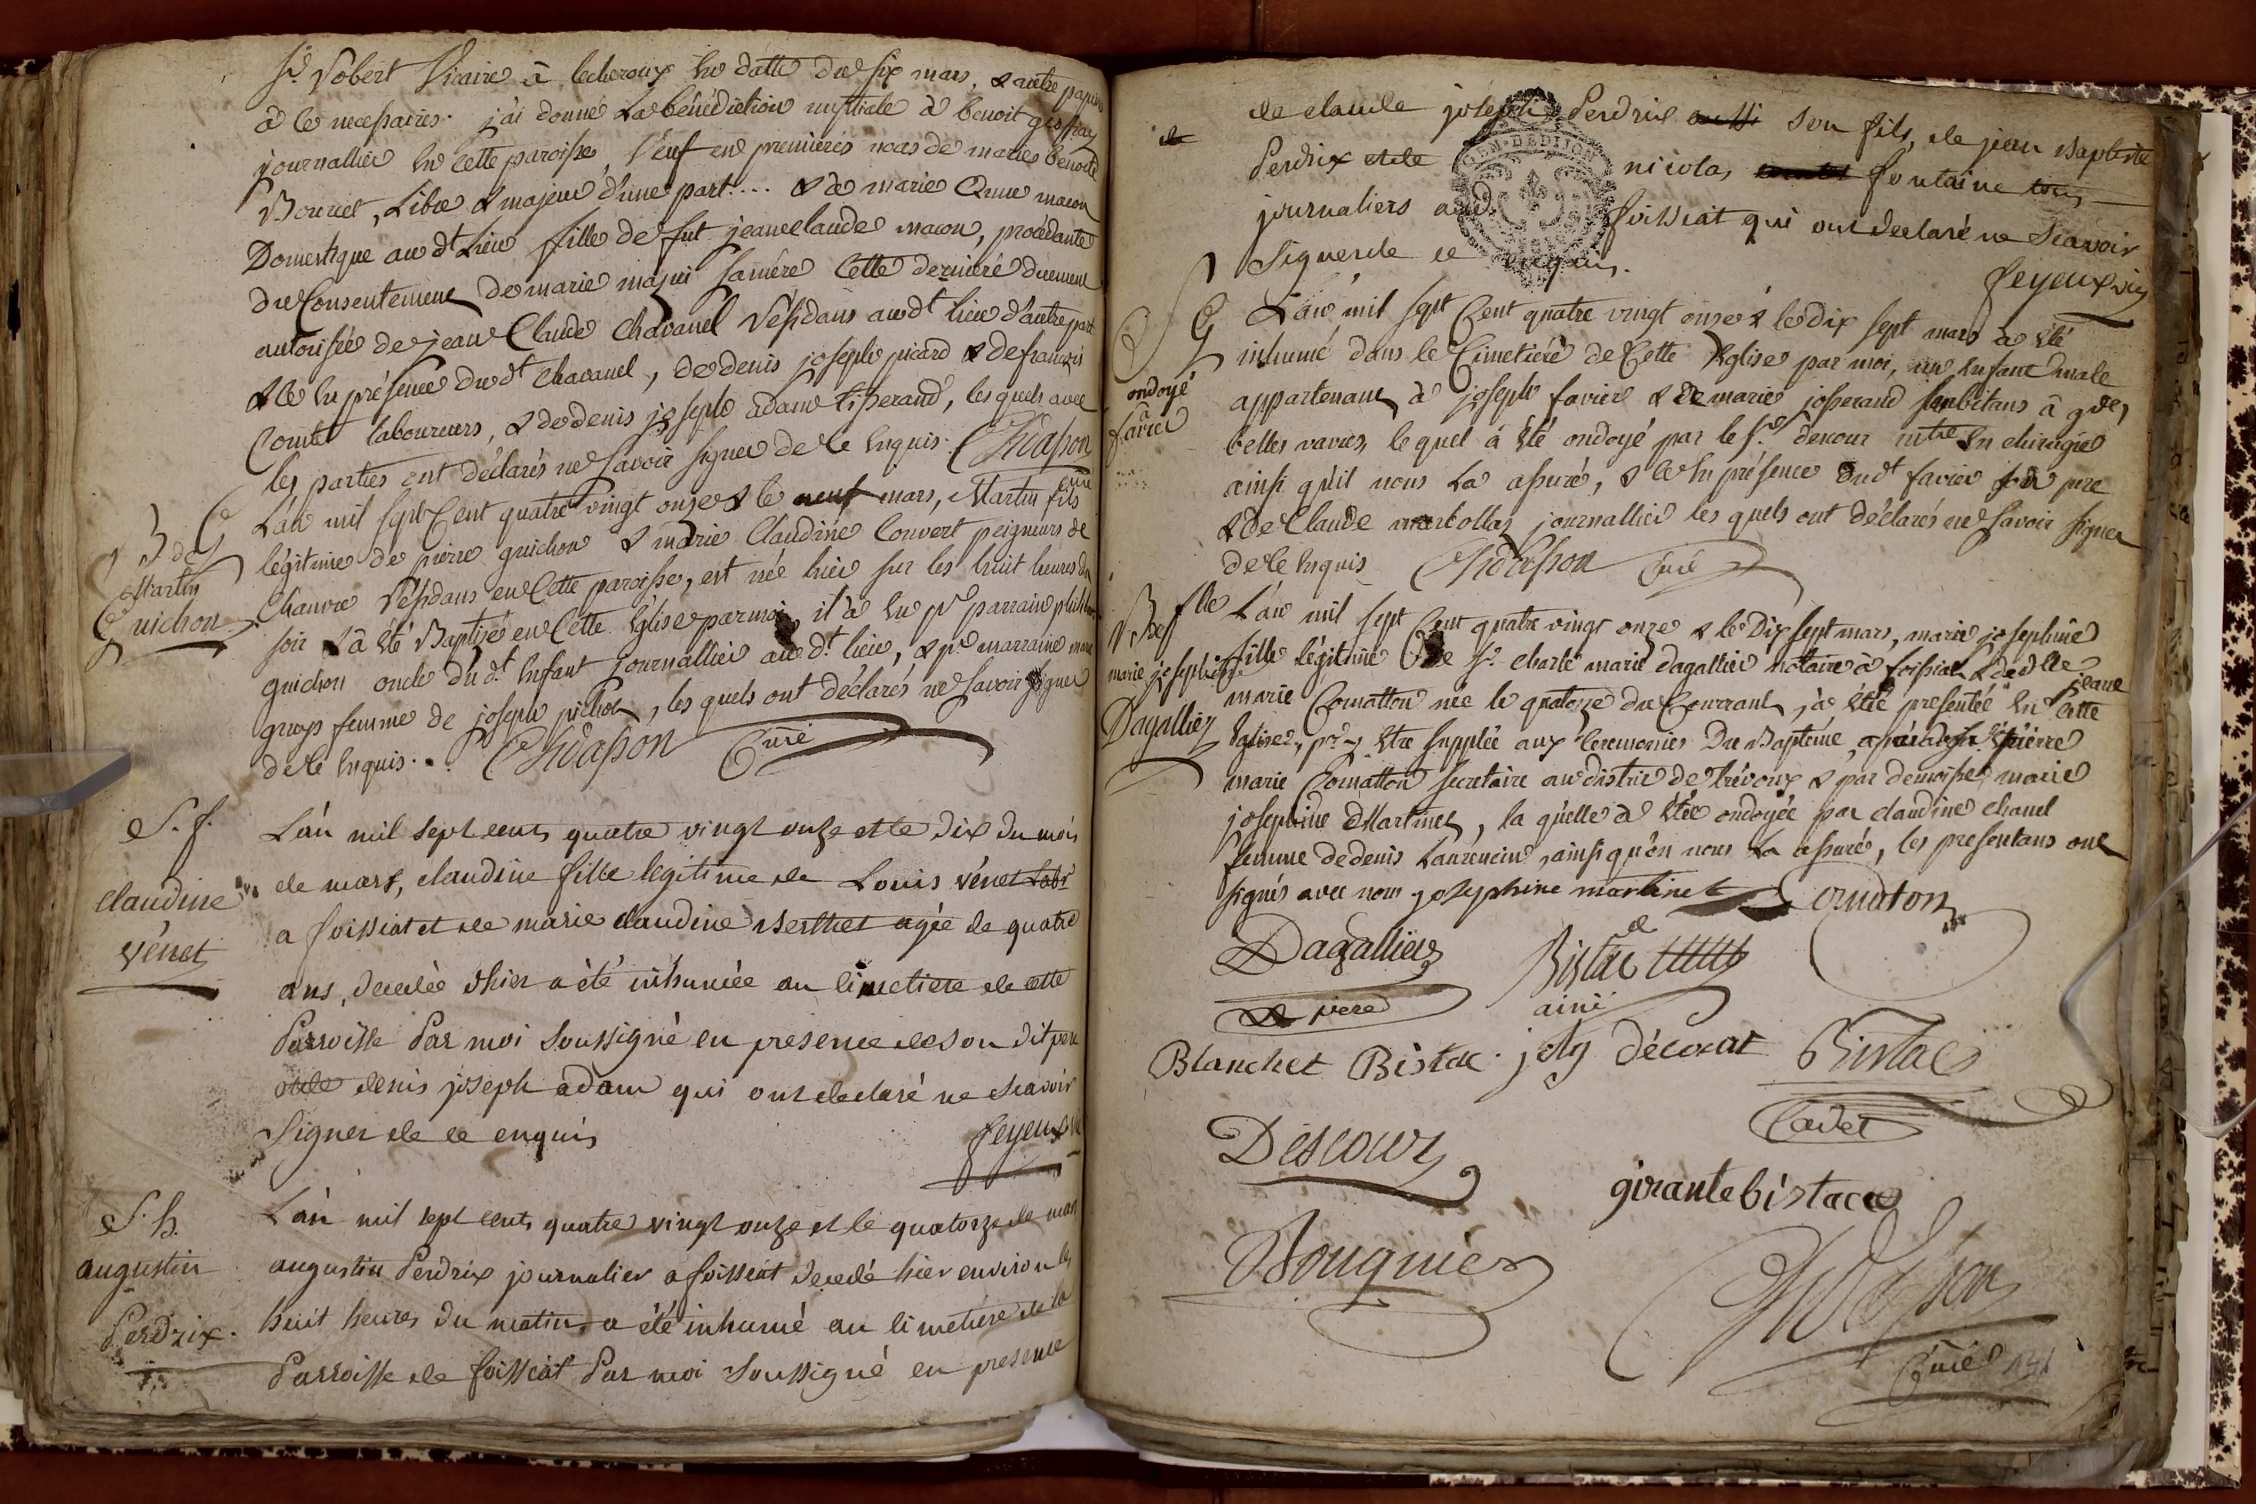 Sr Robert Vicaire à lecheroux en datte du six mars, & autre papiers
à ce necessaires. j'ai donné La bénédiction nuptiale à benoit
journallier en cette paroisse, Veuf en premières noces de marie benoite
Bouvret, Libre & majeur d'une part... & à marie Anne macon
Domestique audt Lieu fille de fut jeanclaude macon, procédante
du Consentement de marie sa mère Cette dernière duement
autorisée de jean Claude Chavanel Résidans audt lieu d'autre part
& ce en présence dudt Chavanel, de denis joseph picard & de françois
Comte laboureurs, & de denis joseph adam tisserand, les quels avec
les parties ont déclarés ne savoir signer de ce enquis. Chidasson
curé
B de
Martin
Guichon
L'an mil sept Cent quatre vingt onze & le neuf mars, Martin fils
légitime de pierre guichon & marie Claudine Convert peigneurs de
Chanvre Résidans en Cette paroisse, est né hier sur les huit heures du
soir & a été Baptisé en Cette Eglise par moi, il a eu pr parrain philibert
guichon oncle dudt Enfant journallier audt lieu, & pr marraine marie
femme de joseph pichod, les quels ont déclarés ne savoir signer
de ce enquis. Chidasson Curé
S. f.
claudine
vénet
L'an mil sept cents quatre vingt onze et le dix du mois
de mars, claudine fille legitime de Louis vénet Labr
a foissiat et de marie claudine Berthet agée de quatre
ans, decedée hier a été inhumée au cimetiere de cette
Parroisse Par moi soussigné en presence de son dit pere
et de denis joseph adam qui ont declaré ne scavoir
signer de ce enquis
feyeux vic
S. h.
augustin
Perdrix.
L'an mil sept cents quatre vingt onze et le quatorze de mars
augustin Perdrix journalier a foissiat decedé hier environ les
huit heures du matin a été inhumé au cimetiere de la
Parroisse de foissiat Par moi soussigné en presence
de claude joseph Perdrix aussi son fils, de jean Baptiste
Perdrix et de nicolas fontaine tous
journaliers aud. foissiat qui ont declaré ne scavoir
signer de ce enquis.
feyeux vic
GEN. DE DIJON
S G
ondoyé
favier
L'an mil sept Cent quatre vingt onze & le dix sept mars a été
inhumé dans le Cimetière de Cette Eglise par moi, un enfant male
appartenant à joseph favier & de marie josserand habitans à gdes
belles vavres, le quel a été ondoyé par le sr decour mtre en chirurgie
ainsi qu'il nous la assuré, & ce en présence dudt favier père
& de Claude journallier les quels ont déclarés ne savoir signer
de ce enquis Chidasson Curé
B de flle
marie josephine
Dagallier
L'an mil sept Cent quatre vingt onze & le Dix sept mars, marie josephine
fille légitime de Sr charle marie Dagallier notaire à foissiat & de dlle jeane
marie Cornatton née le quatorze du Courrant, a été presentée en Cette
Eglise, pr y être supplée aux Ceremonies Du Baptéme, par sr pierre
marie Cornatton secretaire au district de trévoux & par demoiselle marie
josephine Martinet, la quelle a été ondoyée par claudine chanel
femme de denis Laurencin, ainsi qu'on nous la assuré, les presentans ont
signés avec nous josephine martinet Cornaton
Dagallier
père
Bistac
ainé
Blanchet Bistac. joly décorat Bistac
Cadet
Descour
girante bistac
Vouquier
Chidasson
Curé 141